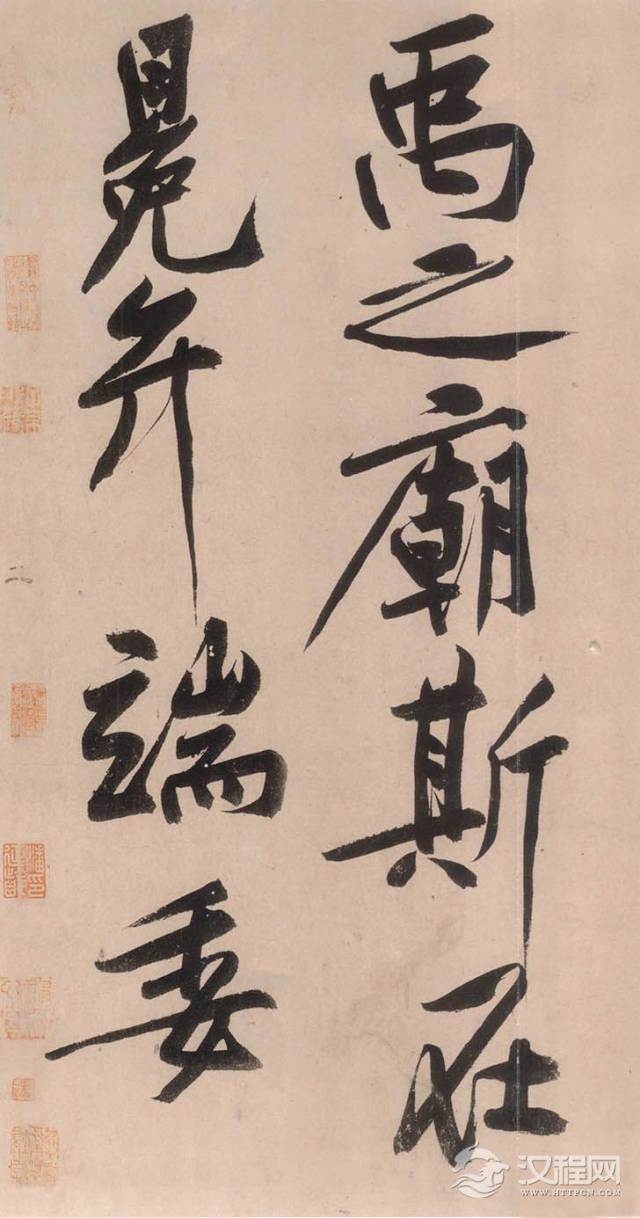 禹之廟斯在
冕弁端委
二
汉程网
WWW.HTTPCN.COM